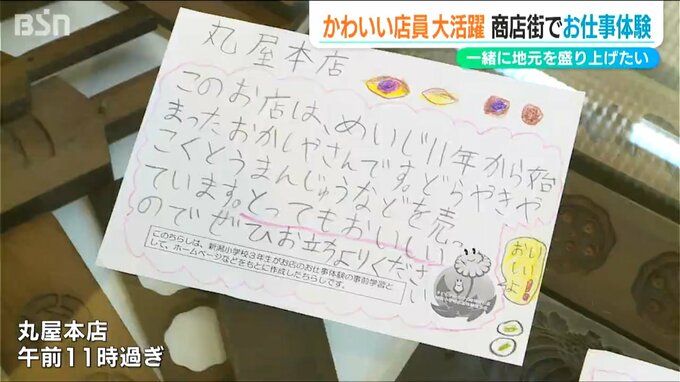 BSN
かわいい店員 大活躍 商店街でお仕事体験
一緒に地元を盛り上げたい
丸屋本店
このお店は、めいじ11年から始
まったおかしやさんです。どらやきや
こくとうまんじゅうなどを売っ
ています。とってもおいしい
のでぜひお立ちよりください
おい
しい
よ
このちらしは、新潟小学校3年生がお店のお仕事体験の事前学習と
して、ホームページなどをもとに作成したちらしです。
丸屋本店
午前11時過ぎ